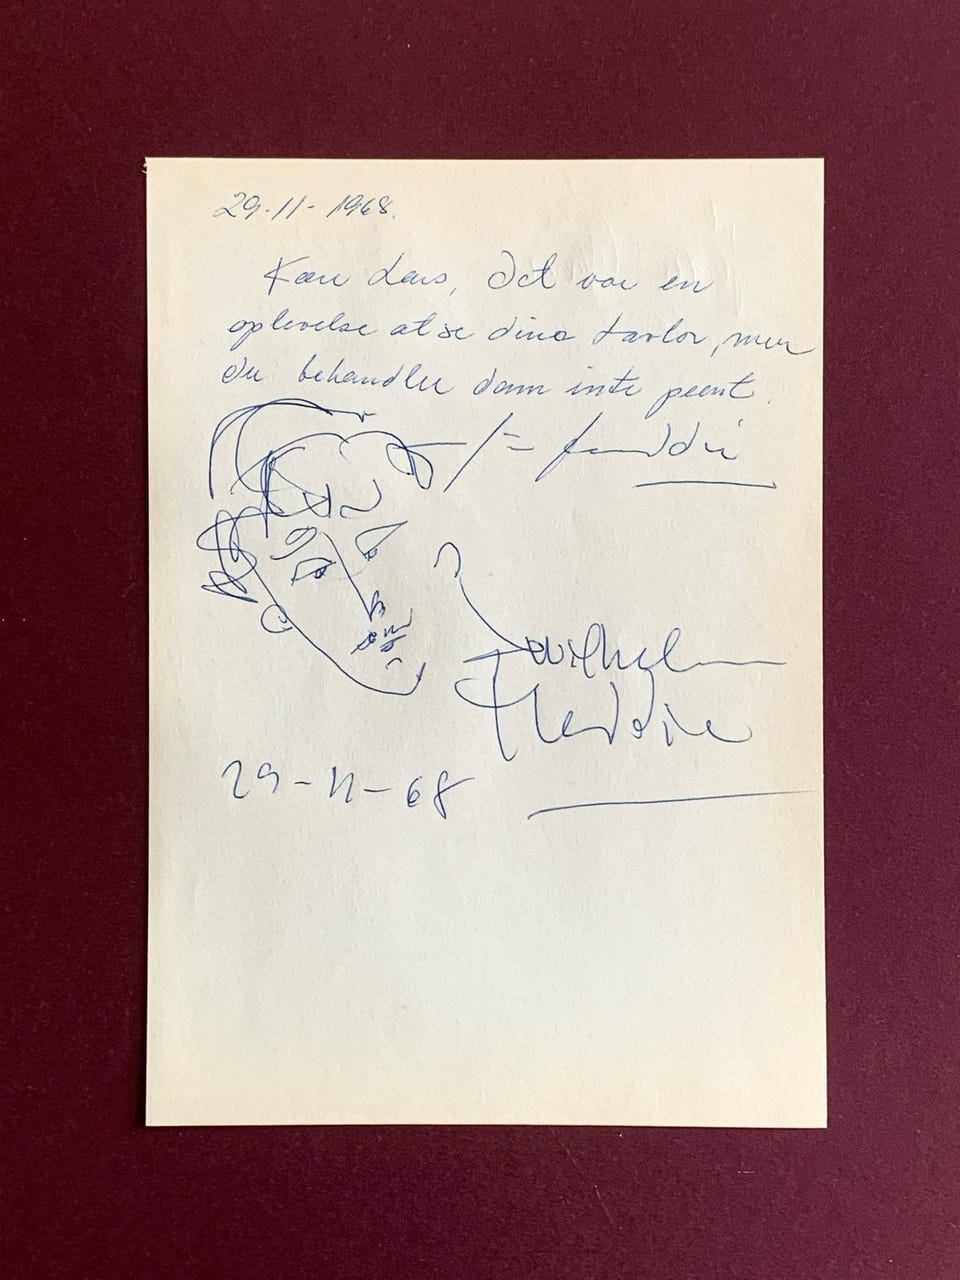 29-11-1968.
Kære Lars, Det var en
oplevelse at se dina tavlor, men
du behandler dem inte pænt.
Freddie
Wilhelm
Freddie
29-11-68